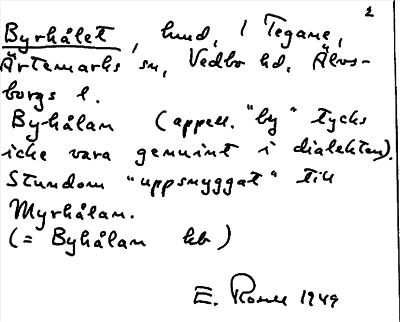 2
Byrhålet, hmd, i Tegane,
Ärtemarks sn, Vedbo hd, Älvs-
borgs l.
Byhålan (appell. "by" tycks
icke vara genuint i dialekten).
Stundom "uppsnyggat" till
Myrhålan.
(= Byhålan kb)
E. 1949